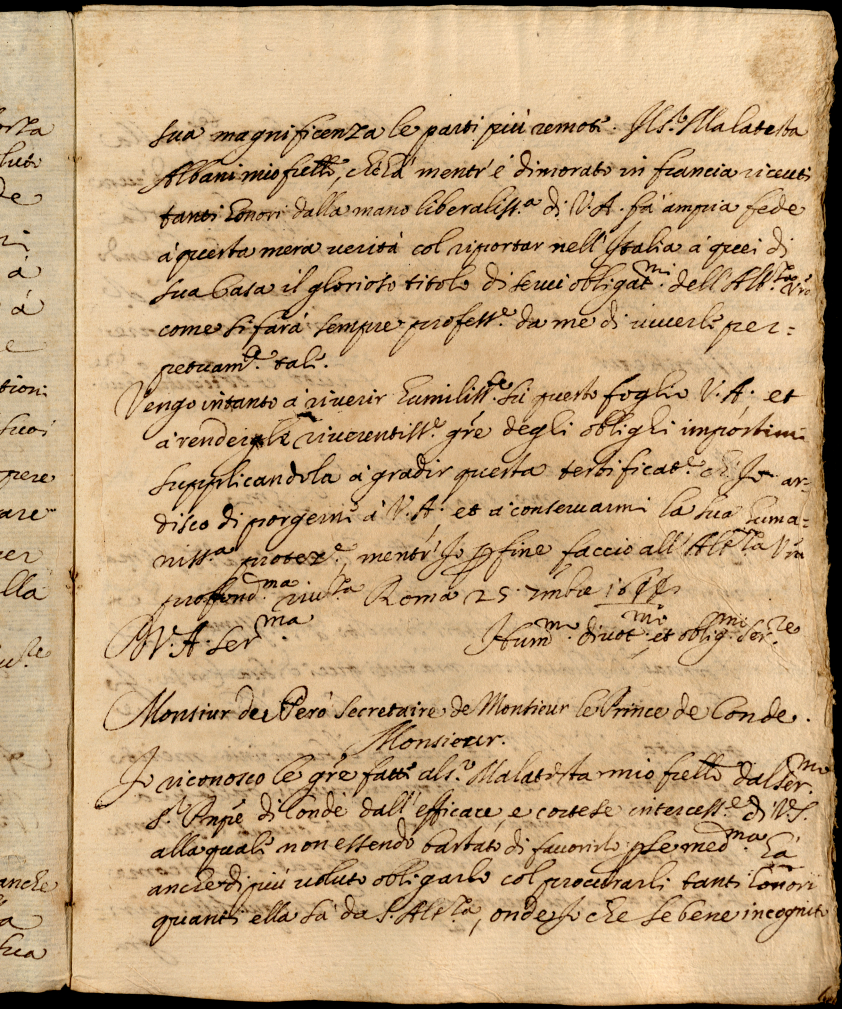 orza
luto
de
ri
à
à
e
tioni
suoi
pere
are
per
lla
anche
la
sua
sua magnificenza le parti più remote. Il S.r Malatesta
Albani mio frello, ch'ha mentr'è dimorato in francia riceuti
tanti honori dalla mano liberaliss.a di V.A. fà ampia fede
à questa mera uerità col riportar nell'Italia à quei di
sua Casa il glorioso titolo di serui obligat.mi dell'Alt.za Vra
come si farà sempre profess.e da me di uiuerle per=
petuam.te tale.
Vengo intanto à riuerir humiliss.te in questo foglio V.A. et
à renderle riuerentiss.e gre degli oblighi
supplicandola à gradir questa testificat.e ch'Io ar=
disco di porgerne à V.A. et à conseruarmi la sua huma=
niss.a protez.e, mentr'Io per fine faccio all'Alt.za Vra
profond.ma riu.za Roma 25 7mbre
D V.A. Ser.ma Hum.mo diuot.mo et oblig.mo Ser.re
Monsiur de Però Secretaire de Monsieur le Prince de Conde.
Monsieur.
Io riconosco le gre fatte al S.r Malatesta mio frello dal Ser.mo
S.r Pnpe di Condè dall'efficace, e cortese intercess.e di V.S.
alla quale non essendo bastato di fauorirlo per se med.ma hà
anche di più uoluto obligarlo col procurarli tanti honori
quanti ella sà da S. Alt.za, onde Io che sebene incognito